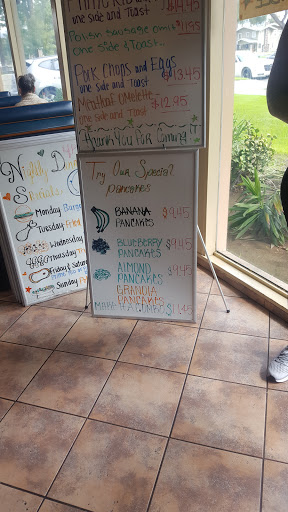 one side and Toast
Polish sausage omlt $11.95
one side & Toast
Pork Chops and Eggs
one side and Toast $13.45
Meatloaf omelette
one side and Toast $12.95
Thank You For Coming!
Try Our Special
pancakes
BANANA
PANCAKES $9.45
BLUEBERRY
PANCAKES $9.45
ALMOND
PANCAKES $9.45
GRANOLA
PANCAKES
MAKE IT A COMBO $11.45
Nightly
Specials
Monday
Tuesday
Wednesday
Thursday
Friday &
Sunday